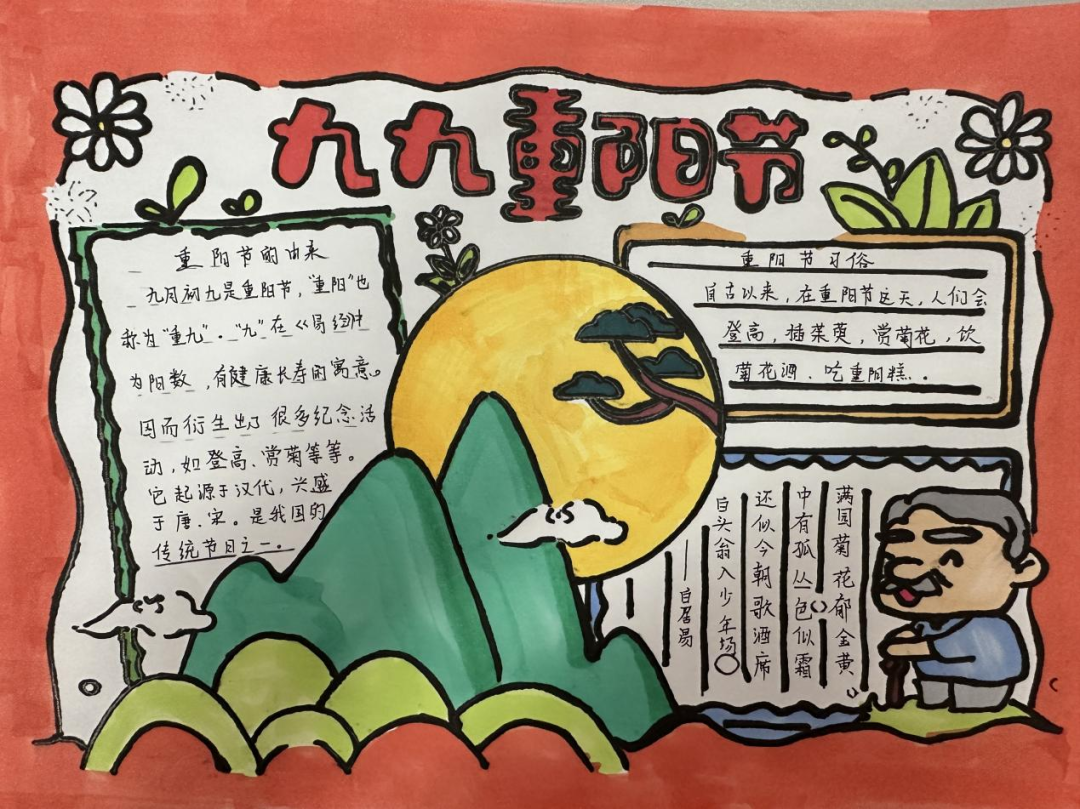 九九重阳节
重阳节的由来
九月初九是重阳节，“重阳”也
称为“重九”。“九”在《易经》中
为阳数，有健康长寿的寓意。
因而衍生出了很多纪念活
动，如登高、赏菊等等。
它起源于汉代，兴盛
于唐、宋。是我国的
传统节目之一。
重阳节习俗
自古以来，在重阳节这天，人们会
登高，插茱萸，赏菊花，饮
菊花酒、吃重阳糕。
满园菊花郁金黄
中有孤丛色似霜
还似今朝歌酒席
白头翁入少年场。
——白居易